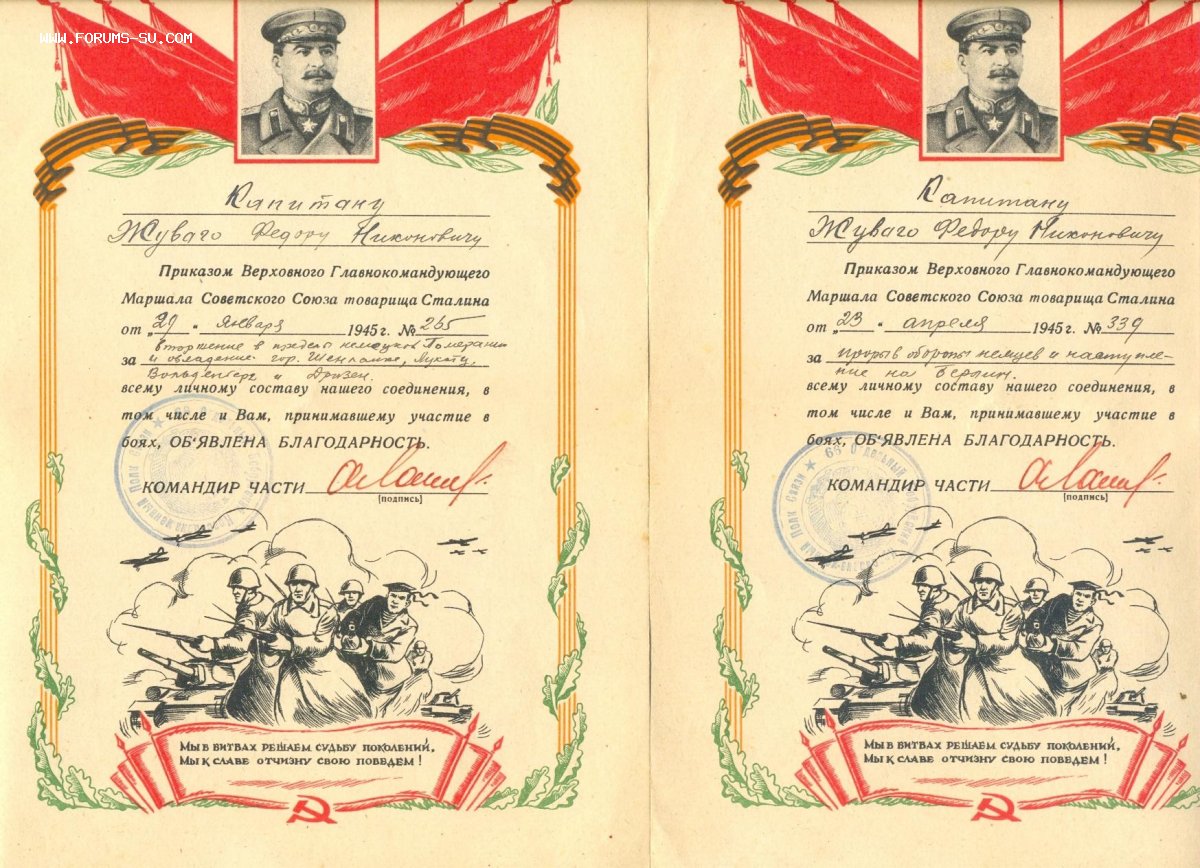 WWW.FORUMS-SU.COM
Капитану
Жуваго Федору Никоновичу
Приказом Верховного Главнокомандующего
Маршала Советского Союза товарища Сталина
от „29 “ января 1945 г. № 265
за вторжение в пределы немецкой Померании
и овладение гор. Шенланке,
Вольденберг и Дризен.
всему личному составу нашего соединения, в
том числе и Вам, принимавшему участие в
боях, ОБ‘ЯВЛЕНА БЛАГОДАРНОСТЬ.
КОМАНДИР ЧАСТИ
[подпись]
Полк Связи
МЫ В БИТВАХ РЕШАЕМ СУДЬБУ ПОКОЛЕНИЙ,
МЫ К СЛАВЕ ОТЧИЗНУ СВОЮ ПОВЕДЕМ!
Капитану
Жуваго Федору Никоновичу
Приказом Верховного Главнокомандующего
Маршала Советского Союза товарища Сталина
от „23 “ апреля 1945 г. № 339
за прорыв обороны немцев и наступле-
ние на Берлин.
всему личному составу нашего соединения, в
том числе и Вам, принимавшему участие в
боях, ОБ‘ЯВЛЕНА БЛАГОДАРНОСТЬ.
КОМАНДИР ЧАСТИ
[подпись]
Полк Связи
МЫ В БИТВАХ РЕШАЕМ СУДЬБУ ПОКОЛЕНИЙ,
МЫ К СЛАВЕ ОТЧИЗНУ СВОЮ ПОВЕДЕМ!